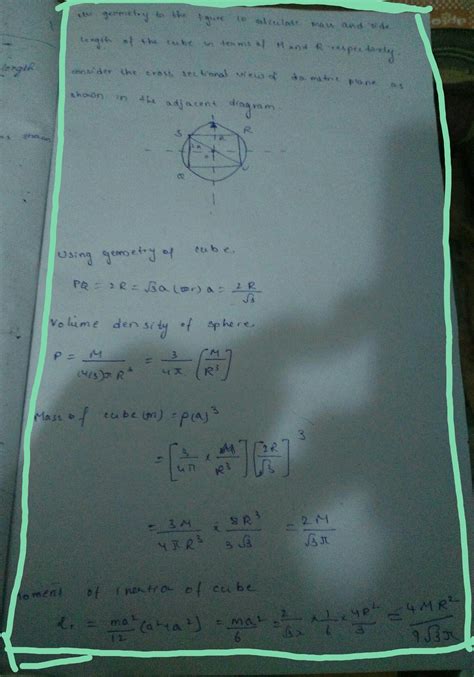 the geometry to the figure to calculate mass and side
length of the cube in terms of M and R respectively.
consider the cross sectional view of a diametric plane as
shown in the adjacent diagram
length
S R
R
Q
Using geometry of cube.
PQ = 2R = √3a (or) a = 2R/√3
Volume density of sphere.
P = M/(4/3)πR³ = 3/4π [M/R³]
Mass of cube (m) = ρ(a)³
= [3/4π × M/R³] [2R/√3]³
= 3M/4πR³ × 8R³/3√3 = 2M/√3π
moment of inertia of cube
= ma²/12 (a²+a²) = ma²/6 = 2/√3π × 1/6 × 4R²/3 = 4MR²/9√3π